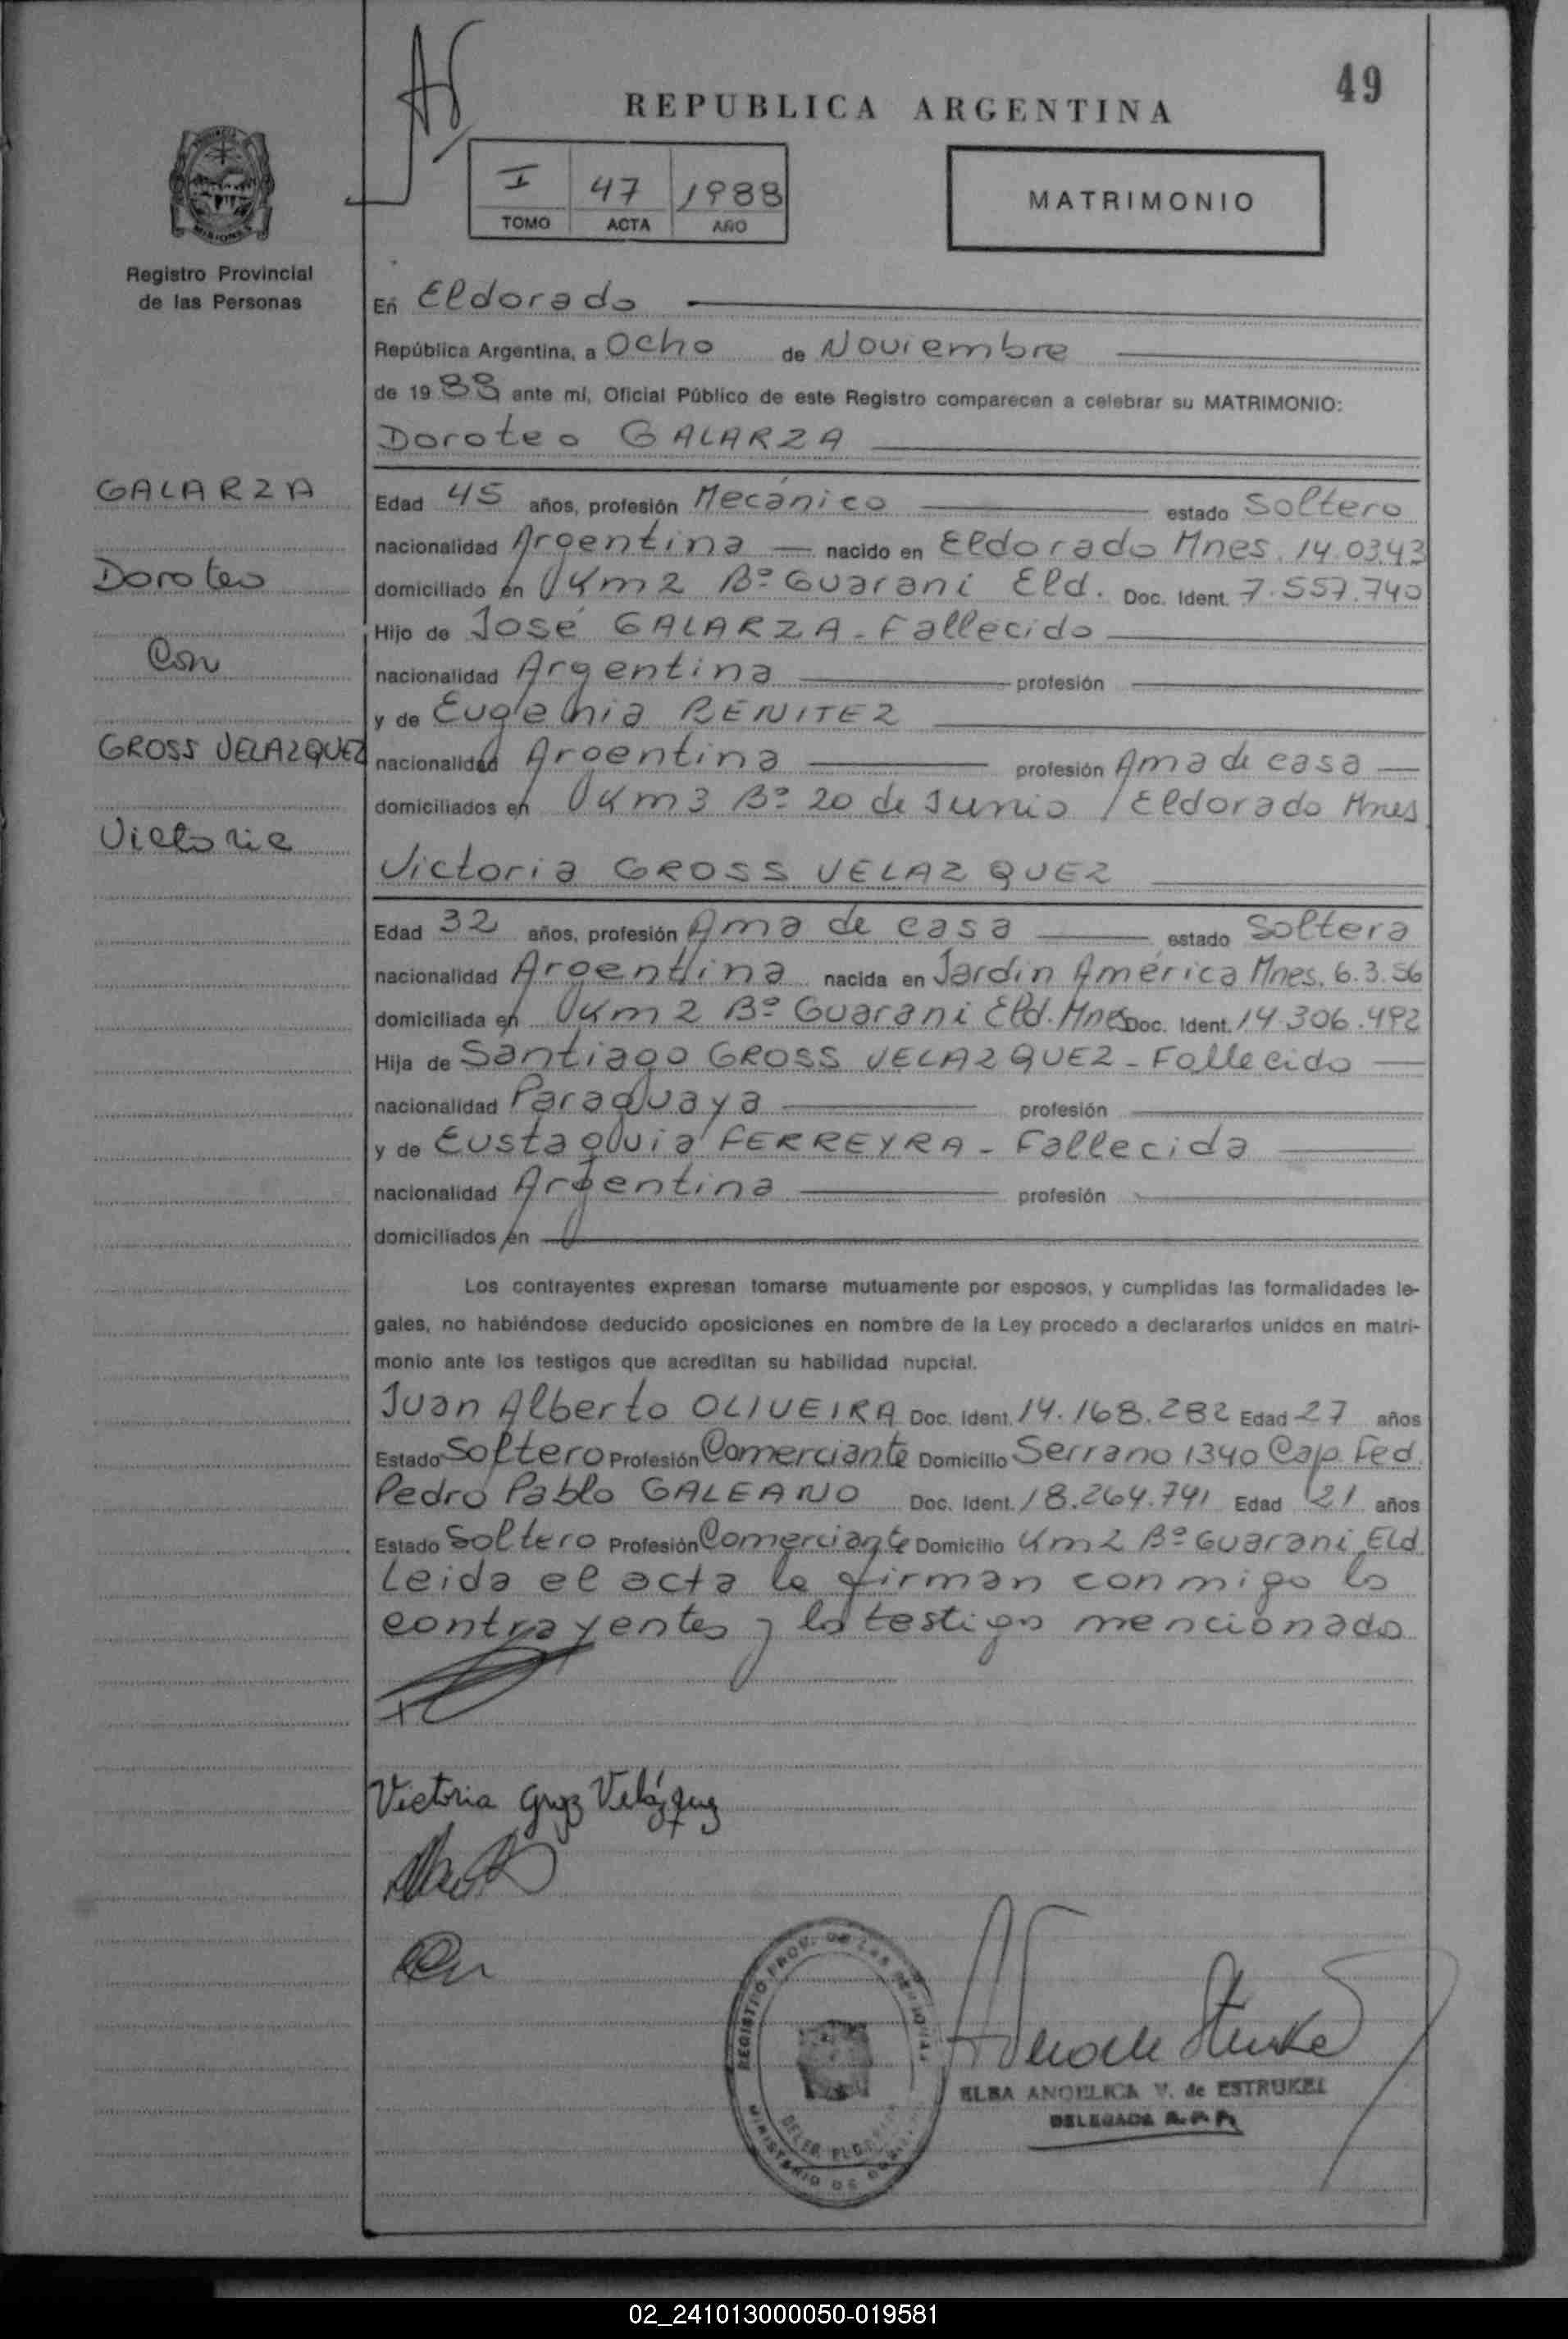 49
REPUBLICA ARGENTINA
I 47 1988
TOMO ACTA AÑO
MATRIMONIO
Registro Provincial
de las Personas
En Eldorado
República Argentina, a Ocho de Noviembre
de 1988 ante mí, Oficial Público de este Registro comparecen a celebrar su MATRIMONIO:
Doroteo GALARZA
GALARZA
Doroteo
Con
GROSS VELAZQUEZ
Victoria
Edad 45 años, profesión Mecánico estado Soltero
nacionalidad Argentina nacido en Eldorado Mnes. 14.03.43
domiciliado en Km 2 Bº Guarani Eld. Doc. Ident. 7.557.740
Hijo de José GALARZA - Fallecido
nacionalidad Argentina profesión
y de Eugenia BENITEZ
nacionalidad Argentina profesión Ama de casa
domiciliados en Km 3 Bº 20 de Junio / Eldorado Mnes
Victoria GROSS VELAZQUEZ
Edad 32 años, profesión Ama de casa estado Soltera
nacionalidad Argentina nacida en Jardin América Mnes. 6.3.56
domiciliada en Km 2 Bº Guarani Eld. Mnes Doc. Ident. 14.306.492
Hija de Santiago GROSS VELAZQUEZ - Fallecido
nacionalidad Paraguaya profesión
y de Eustaquia FERREYRA - Fallecida
nacionalidad Argentina profesión
domiciliados en
Los contrayentes expresan tomarse mutuamente por esposos, y cumplidas las formalidades le-
gales, no habiéndose deducido oposiciones en nombre de la Ley procedo a declararlos unidos en matri-
monio ante los testigos que acreditan su habilidad nupcial.
Juan Alberto OLIVEIRA Doc. Ident. 14.168.282 Edad 27 años
Estado Soltero Profesión Comerciante Domicilio Serrano 1340 Cap. Fed.
Pedro Pablo GALEANO Doc. Ident. 18.264.741 Edad 21 años
Estado Soltero Profesión Comerciante Domicilio Km 2 Bº Guarani Eld
Leida el acta la firman conmigo los
contrayentes y los testigos mencionados
Victoria Gros Velázquez
REGISTRO PROV. DE LAS PERSONAS
MINISTERIO DE
ELBA ANGELICA V. de ESTRUKEL
DELEGADA R.P.P.
02_241013000050-019581